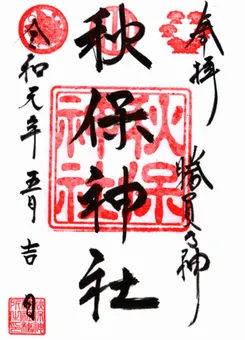 奉拝 勝負乃神
秋保神社
秋保
神社
令和元年五月吉日